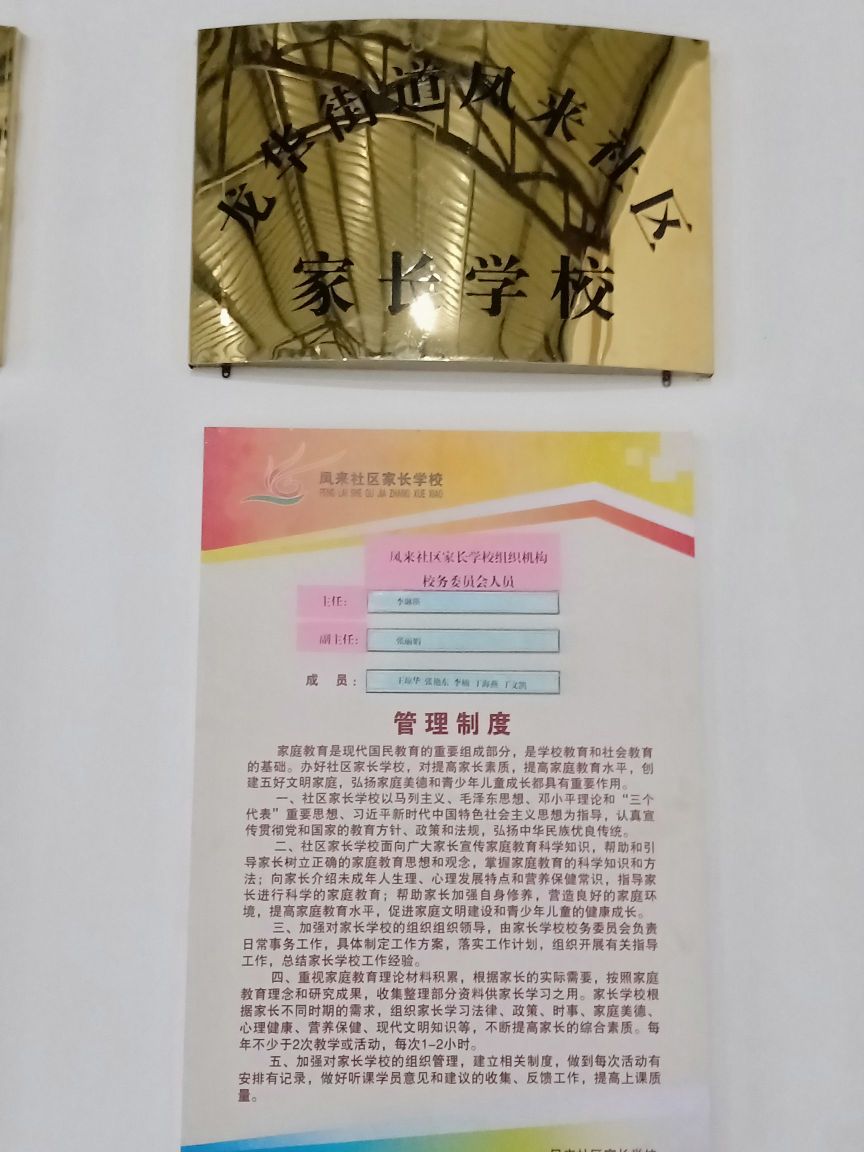 龙华街道凤来社区
家长学校
凤来社区家长学校
FENG LAI SHE QU JIA ZHANG XUE XIAO
凤来社区家长学校组织机构
校务委员会人员
主任：
副主任：
成 员： 王琼华 张艳东 李楠 丁海燕 丁文凯
管理制度
家庭教育是现代国民教育的重要组成部分，是学校教育和社会教育
的基础。办好社区家长学校，对提高家长素质，提高家庭教育水平，创
建五好文明家庭，弘扬家庭美德和青少年儿童成长都具有重要作用。
一、社区家长学校以马列主义、毛泽东思想、邓小平理论和“三个
代表”重要思想、习近平新时代中国特色社会主义思想为指导，认真宣
传贯彻党和国家的教育方针、政策和法规，弘扬中华民族优良传统。
二、社区家长学校面向广大家长宣传家庭教育科学知识，帮助和引
导家长树立正确的家庭教育思想和观念，掌握家庭教育的科学知识和方
法；向家长介绍未成年人生理、心理发展特点和营养保健常识，指导家
长进行科学的家庭教育；帮助家长加强自身修养，营造良好的家庭环
境，提高家庭教育水平，促进家庭文明建设和青少年儿童的健康成长。
三、加强对家长学校的组织组织领导，由家长学校校务委员会负责
日常事务工作，具体制定工作方案，落实工作计划，组织开展有关指导
工作，总结家长学校工作经验。
四、重视家庭教育理论材料积累，根据家长的实际需要，按照家庭
教育理念和研究成果，收集整理部分资料供家长学习之用。家长学校根
据家长不同时期的需求，组织家长学习法律、政策、时事、家庭美德、
心理健康、营养保健、现代文明知识等，不断提高家长的综合素质。每
年不少于2次教学或活动，每次1-2小时。
五、加强对家长学校的组织管理，建立相关制度，做到每次活动有
安排有记录，做好听课学员意见和建议的收集、反馈工作，提高上课质
量。
凤来社区家长学校